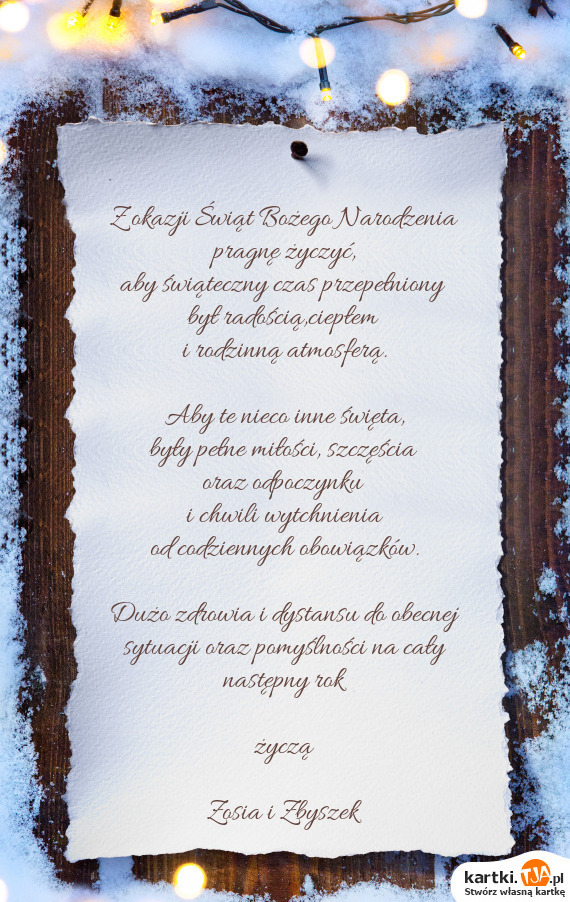 Z okazji Świąt Bożego Narodzenia
pragnę życzyć,
aby świąteczny czas przepełniony
był radością,ciepłem
i rodzinną atmosferą.
Aby te nieco inne święta,
były pełne miłości, szczęścia
oraz odpoczynku
i chwili wytchnienia
od codziennych obowiązków.
Dużo zdrowia i dystansu do obecnej
sytuacji oraz pomyślności na cały
następny rok
życzą
Zosia i Zbyszek
kartki.TJA.pl
Stwórz własną kartkę